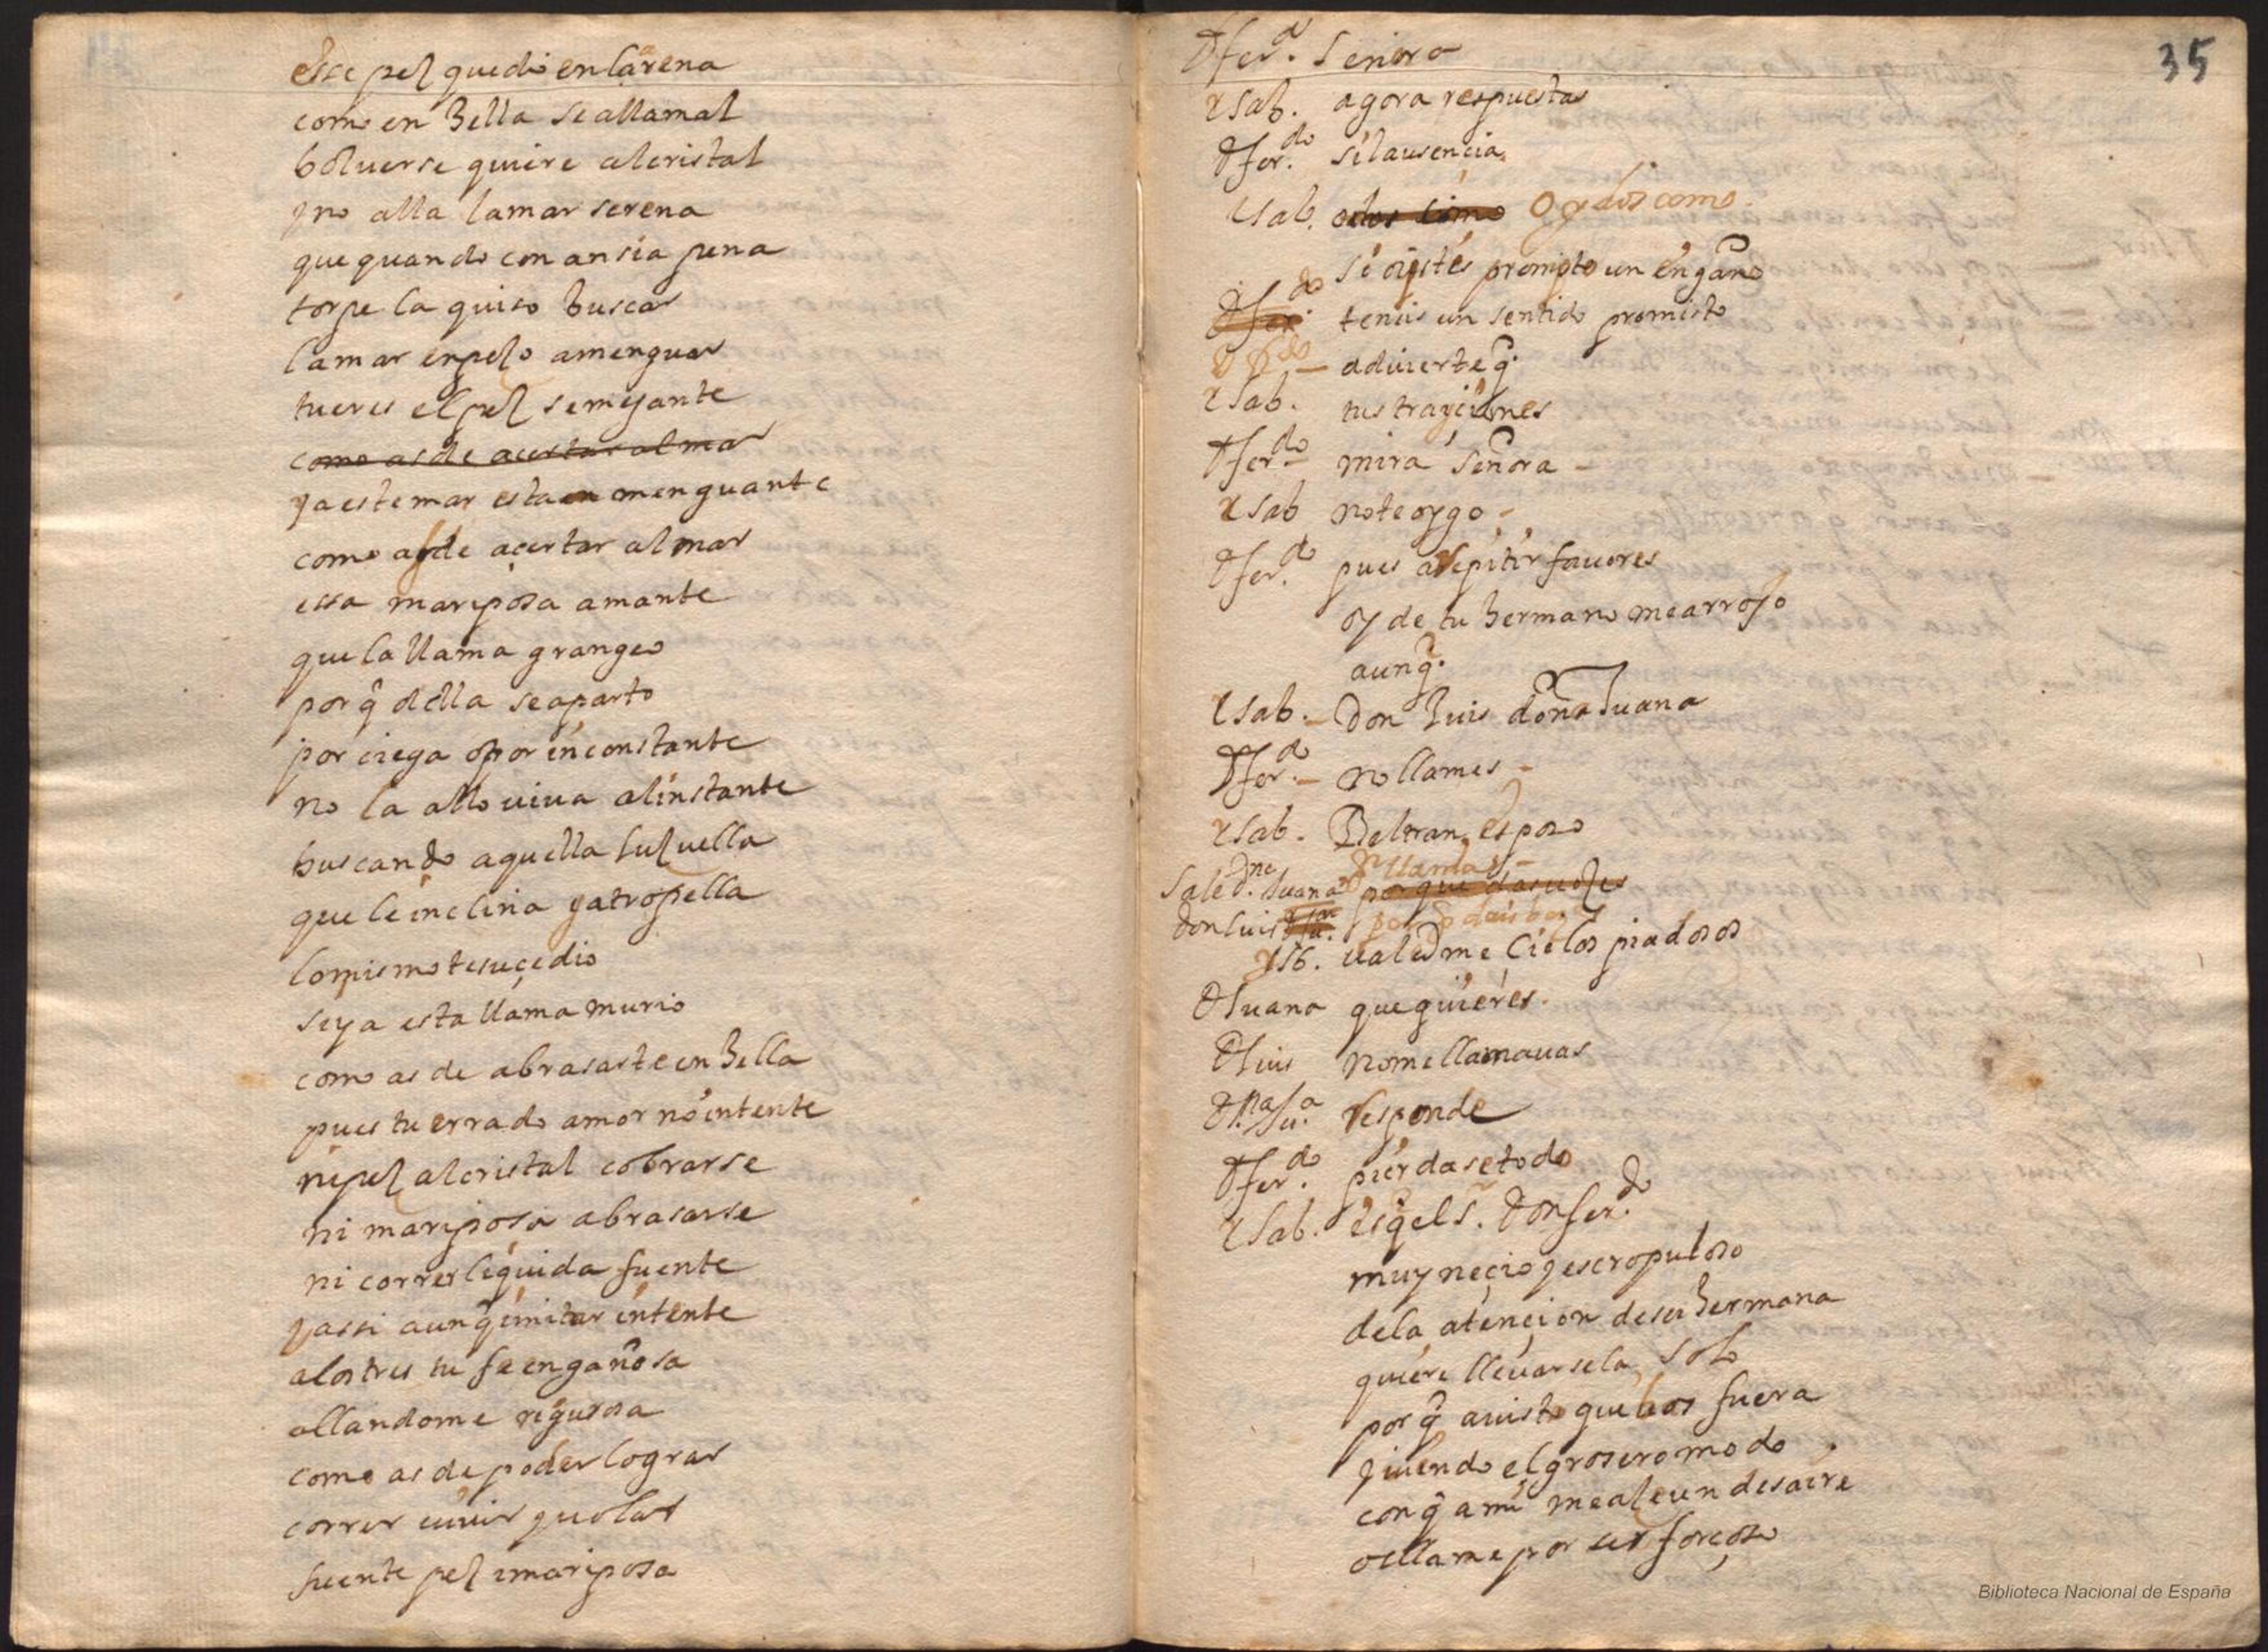 esse pez que dio en la arena
como en hella se alla mal
boluerse quiere al cristal
y no alla la mar serena
que quando con ansia pena
torpe la quiso buscar
la mar enpezo a menguar
tu eres el pez semejante
como as de acertar al mar
ya este mar esta en menguante
como as de açertar al mar
essa mariposa amante
que la llama grangeo
por q̃ della se aparto
por ciega o por inconstante
no la allo uiua al instante
buscando aquella luz uella
que le inclina y atropella
lo mismo te suçedio
si ya esta llama murio
como as de abrasarte en hella
pues tu errado amor no intente
ni pez al cristal cobrarse
ni mariposa abrasarse
ni correr liquida fuente
y assi aunq̃ imitar intente
a los tres tu fe engañosa
allandome rigurosa
como as de poder lograr
correr uiuir y uolar
fuente pez i mariposa
35
D fer.do Señora
Ysab. agora respuestas
D fer.do si la ausencia
Ysab. odos como Oydos como
si oystes prompto un engaño
D fer.do teneis un sentido promisto
D f.do – aduierte q̃.
Ysab. tus trayciones
D fer.do – mira Señora –
Ysab no te oygo –
D fer.do pues a repitir fauores
oy de tu hermano me arrojo
aunq̃.
Ysab. – Don luis doña Juana
D fer.do – no llames –
Ysab. Beltran, esposo
Sale d.ña Juana por que das uozes
Don luis por q̃ dais bozes
Ysb. ualedme Cielos piadosos
D Juana que quieres.
D luis no me llamauas
D.ña Ju.a responde
D fer.do pierdase todo
Ysab. es q̃ el s. Don fer.do
muy neçio y escropuloso
de la atençion de su hermana
quiere lleuarsela solo
por q̃ a uisto que uos fuera
y uiendo el grosero modo
con q̃ a mi me aze un desaire
o llame por ser forçoso
Biblioteca Nacional de España